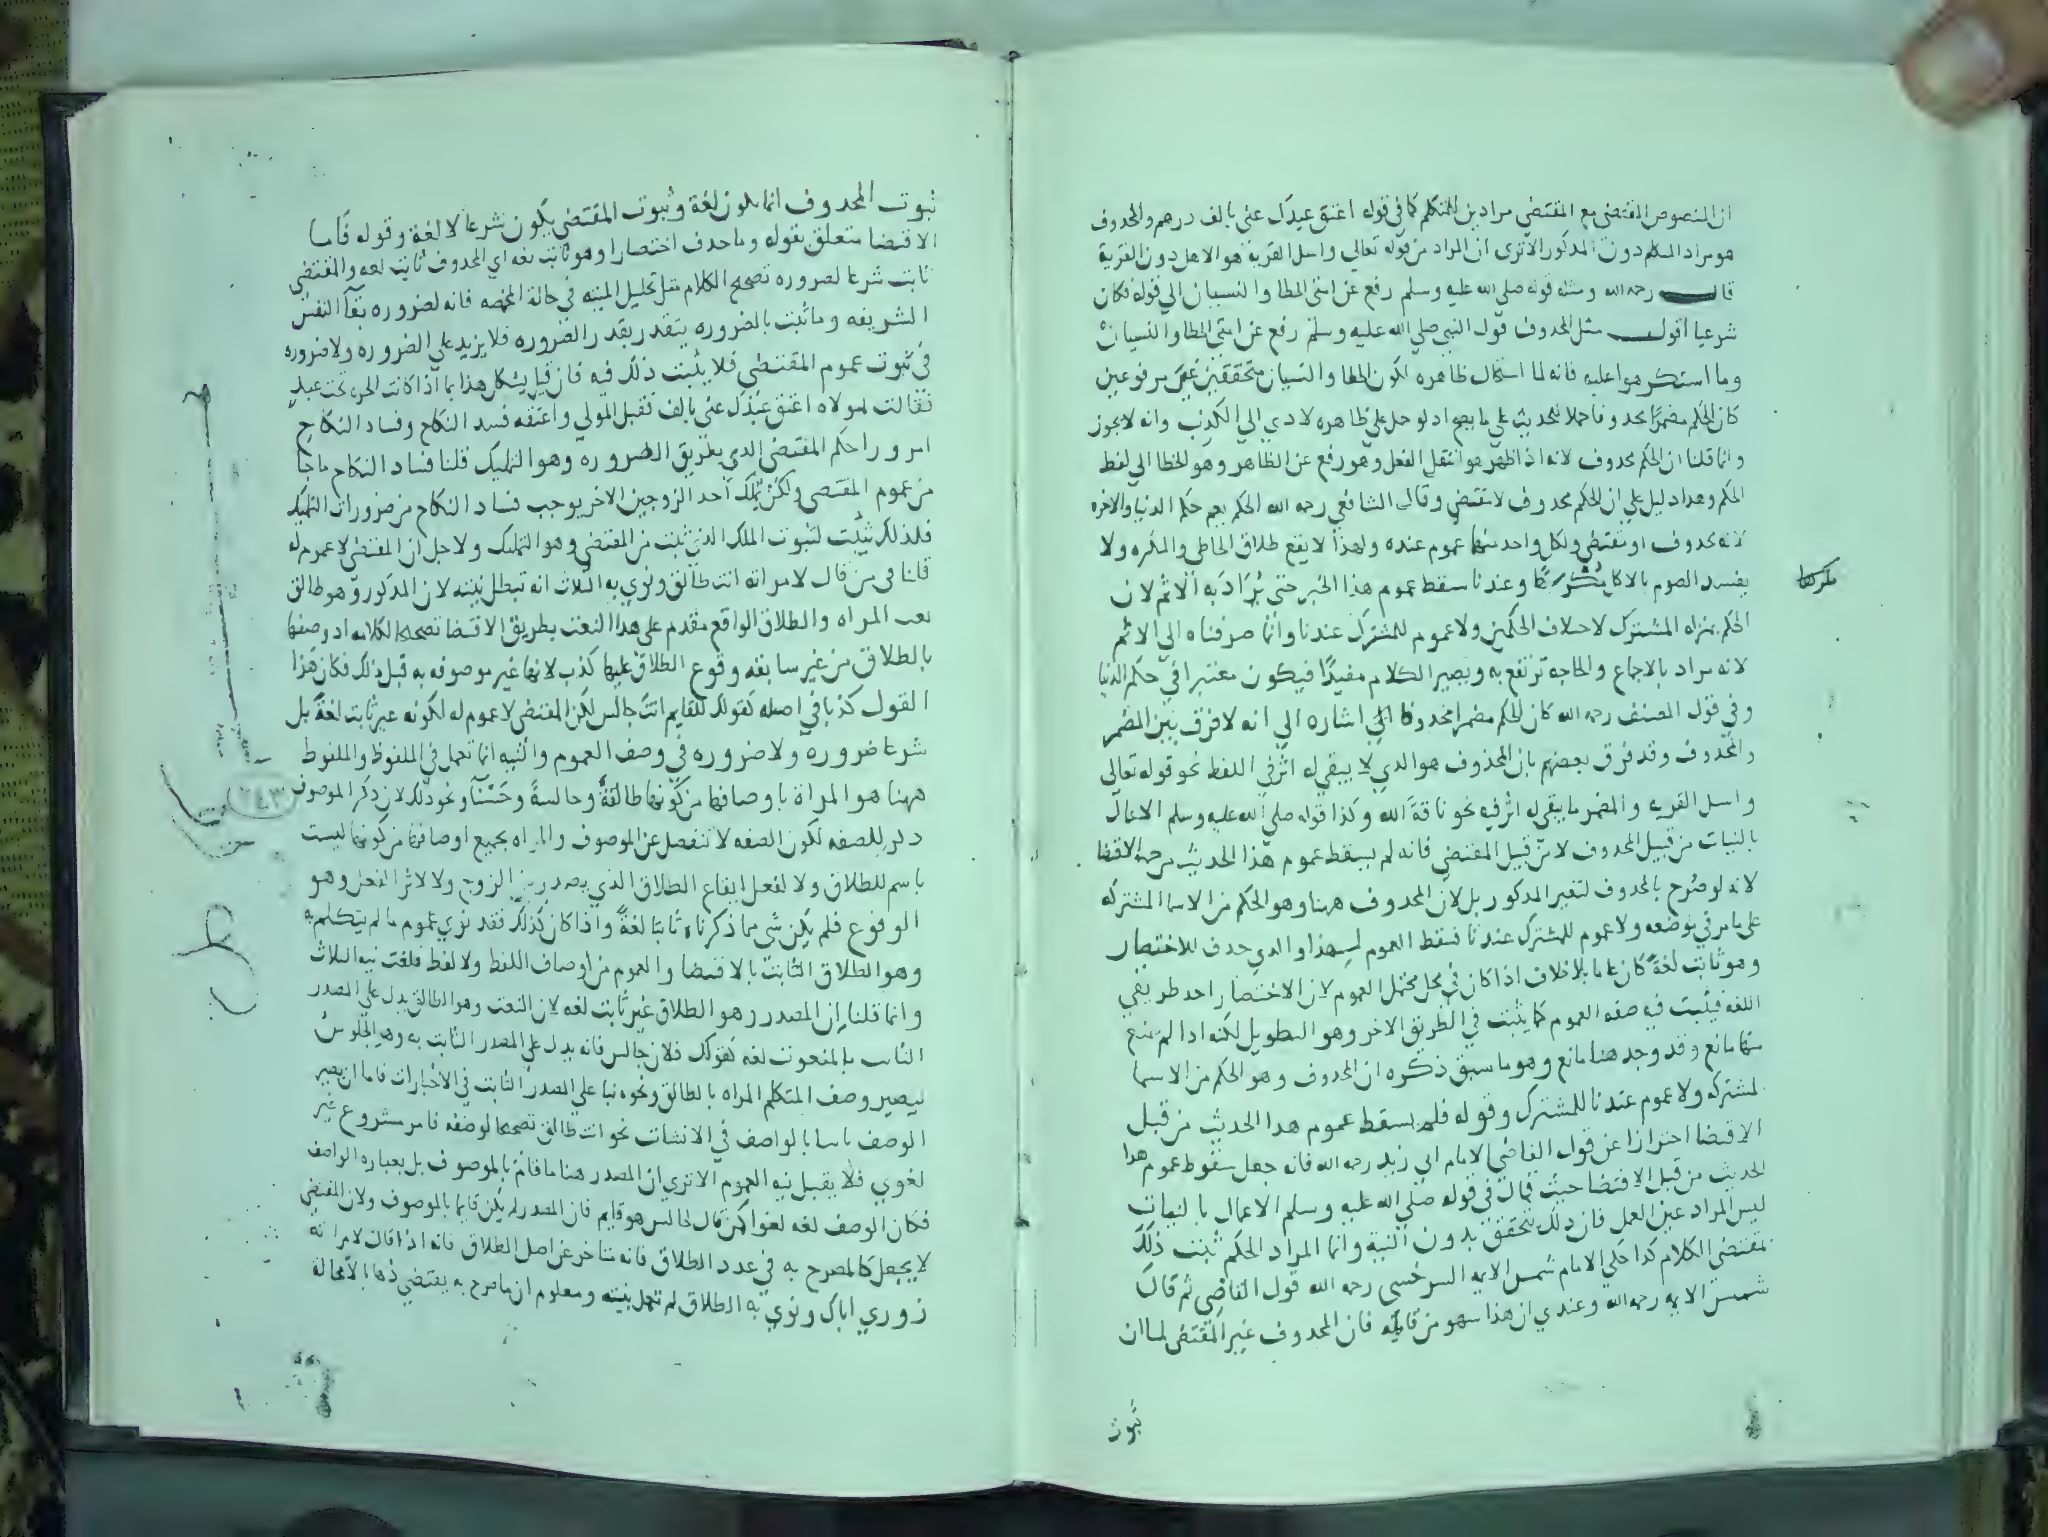 ان المنصوص المقتضي مع المقتضي مرادين للمتكلم كما في قوله اعتق عبدك عني بالف درهم والمحدوف
هو مراد المتكلم دون المدكور الا تري ان المراد من قوله تعالي واسل القرية هو الاهل دون القرية
قال رحمه الله ومثله قوله صلي الله عليه وسلم رفع عن امتي الخطا والنسيان الي قوله فكان
شرعيا اقول مثل المحدوف قول النبي صلي الله عليه وسلم رفع عن امتي الخطا والنسيان
وما استكرهوا عليه فانه لما استحال ظاهره لكون الخطا والنسيان متحققين غير مرفوعين
كان الحكم مضمرا محدوفا حملا للحديث علي ما يصح اد لو حمل علي ظاهره لادي الي الكدب وانه لا يجوز
وانما قلنا ان الحكم محدوف لانه اذا ظهر هو انتقل الفعل وهو رفع عن الظاهر وهو الخطا الي لفط
الحكم وهدا دليل علي ان الحكم محدوف لا مقتضي وقال الشافعي رحمه الله الحكم يعم حكم الدنيا والاخره
لانه محدوف او مقتضي ولكل واحد منهما عموم عنده ولهذا لا يقع طلاق الخاطي والمكره ولا
يفسد الصوم بالاكل مكرها وعندنا سقط عموم هذا الخبر حتي يراد به الاثم لان
مكرها
الحكم بمنزله المشترك لاختلاف الحكمين ولا عموم للمشترك عندنا وانما صرفناه الي الاثم
لانه مراد بالاجماع والحاجه ترتفع به ويصير الكلام مفيدا فيكون معتبرا في حكم الدنيا
وفي قول المصنف رحمه الله كان الحكم مضمرا محدوفا اشاره الي انه لا فرق بين المضمر
والمحدوف وقد فرق بعضهم بان المحذوف هو الدي لا يبقي له اثر في اللفظ نحو قوله تعالي
واسل القريه والمضمر ما يبقي له اثر فيه نحو ناقة الله وكذا قوله صلي الله عليه وسلم الاعمال
بالنيات من قبيل المحدوف لا من قبيل المقتضي فانه لم يسقط عموم هذا الحديث من جهة الاقتضا
لانه لو صرح بالمحدوف لتغير المدكور بل لان المحدوف ههنا وهو الحكم من الاسما المشتركه
علي ما مر في موضعه ولا عموم للمشترك عندنا فسقط العموم لهذا والدي حدف للاختصار
وهو ثابت لغة كان عاما بلا خلاف اذا كان في محل يحتمل العموم لان الاختصار احد طريقي
اللغه فيثبت فيه صفه العموم كما يثبت في الطريق الاخر وهو التطويل لكنه ادا لم يمنع
منها مانع وقد وجد هنا مانع وهو ما سبق ذكره ان المحدوف وهو الحكم من الاسما
لمشتركه ولا عموم عندنا للمشترك وقوله فلم يسقط عموم هدا الحديث من قبل
الاقتضا احترازا عن قول القاضي الامام ابي زيد رحمه الله فانه جعل سقوط عموم هدا
الحديث من قبل الاقتضا حيث قال في قوله صلي الله عليه وسلم الاعمال بالنيات
ليس المراد عين العمل فان دلك يتحقق بدون النية وانما المراد الحكم ثبت ذلك
لمقتضي الكلام كدا حكي الامام شمس الايمه السرخسي رحمه الله قول القاضي ثم قال
شمس الايمه رحمه الله وعندي ان هذا سهو من قايله فان المحدوف غير المقتضي لما ان
ثبوت
ثبوت المحدوف انما يكون لغة وثبوت المقتضي يكون شرعا لا لغة وقوله فاما
الاقتضا متعلق بقوله وما حدف اختصارا وهو ثابت لغه اي المحدوف ثابت لغه والمقتضي
ثابت شرعا لضروره تصحيح الكلام مثل تحليل الميته في حالة المخمصه فانه لضروره بقا النفس
الشريفه وما ثبت بالضروره يتقدر بقدر الضروره فلا يزيد علي الضروره ولا ضروره
في ثبوت عموم المقتضي فلا يثبت ذلك فيه فان قيل يشكل هذا بما اذا كانت الحره تحت عبد
فقالت لمولاه اعتق عبدك عني بالف فقبل المولي واعتقه فسد النكاح وفساد النكاح
امر ورا حكم المقتضي الدي بطريق الضروره وهو التمليك قلنا فساد النكاح ما جا
من عموم المقتضي ولكن تملك احد الزوجين الاخر يوجب فساد النكاح من ضرورات التمليك
فلذلك يثبت لثبوت الملك الدي ثبت من المقتضي وهو التمليك ولاجل ان المقتضي لا عموم له
قلنا في من قال لامراته انت طالق ونوي به الثلاث انه تبطل نيته لان المدكور وهو طالق
نعت المراه والطلاق الواقع مقدم علي هدا النعت بطريق الاقتضا تصحيحا لكلامه اد وصفها
بالطلاق من غير سابقه وقوع الطلاق عليها كذب لانها غير موصوفه به قبل ذلك فكان هذا
القول كذبا في اصله كقولك للقايم انت جالس لكن المقتضي لا عموم له لكونه غير ثابت لغة بل
شرعا ضروره ولا ضروره في وصف العموم والنيه انما تعمل في الملفوظ والملفوظ
ههنا هو المراة باوصافها من كونها طالقة وجالسة وحسنا ونحو ذلك لان ذكر الموصوف
٢٤٣
دكر للصفه لكون الصفه لا تنفصل عن الموصوف والمراه بجميع اوصافها من كونها ليست
باسم للطلاق ولا لفعل ايقاع الطلاق الذي يصدر من الزوج ولا لاثر الفعل وهو
الوقوع فلم يكن شي مما ذكرناه ثابتا لغة واذا كان كذلك فقد نوي عموم ما لم يتكلم به
وهو الطلاق الثابت بالاقتضا والعموم من اوصاف اللفظ ولا لفظ فلغت نيه الثلاث
وانما قلنا ان المصدر وهو الطلاق غير ثابت لغه لان النعت وهو الطالق يدل علي المصدر
الثابت بالمنعوت لغه كقولك فلان جالس فانه يدل علي المصدر الثابت به وهي الجلوس
ليصير وصف المتكلم المراه بالطالق ونحوه بنا علي المصدر الثابت في الاخبارات فاما ان يصير
الوصف ثابتا بالواصف في الانشات نحو انت طالق تصحيحا لوصفه فامر مشروع غير
لغوي فلا يقبل نيه العموم الا تري ان المصدر هنا ما قام بالموصوف بل بعباره الواصف
فكان الوصف لغه لغوا كمن قال لجالس هو قايم فان المصدر لم يكن قايما بالموصوف ولان المقتضي
لا يجعل كالمصرح به في عدد الطلاق فانه متاخر عن اصل الطلاق فانه اذا قال لامراته
زوري اباك ونوي به الطلاق لم تعمل نيته ومعلوم ان ما صرح به يقتضي ذهابا لا محالة